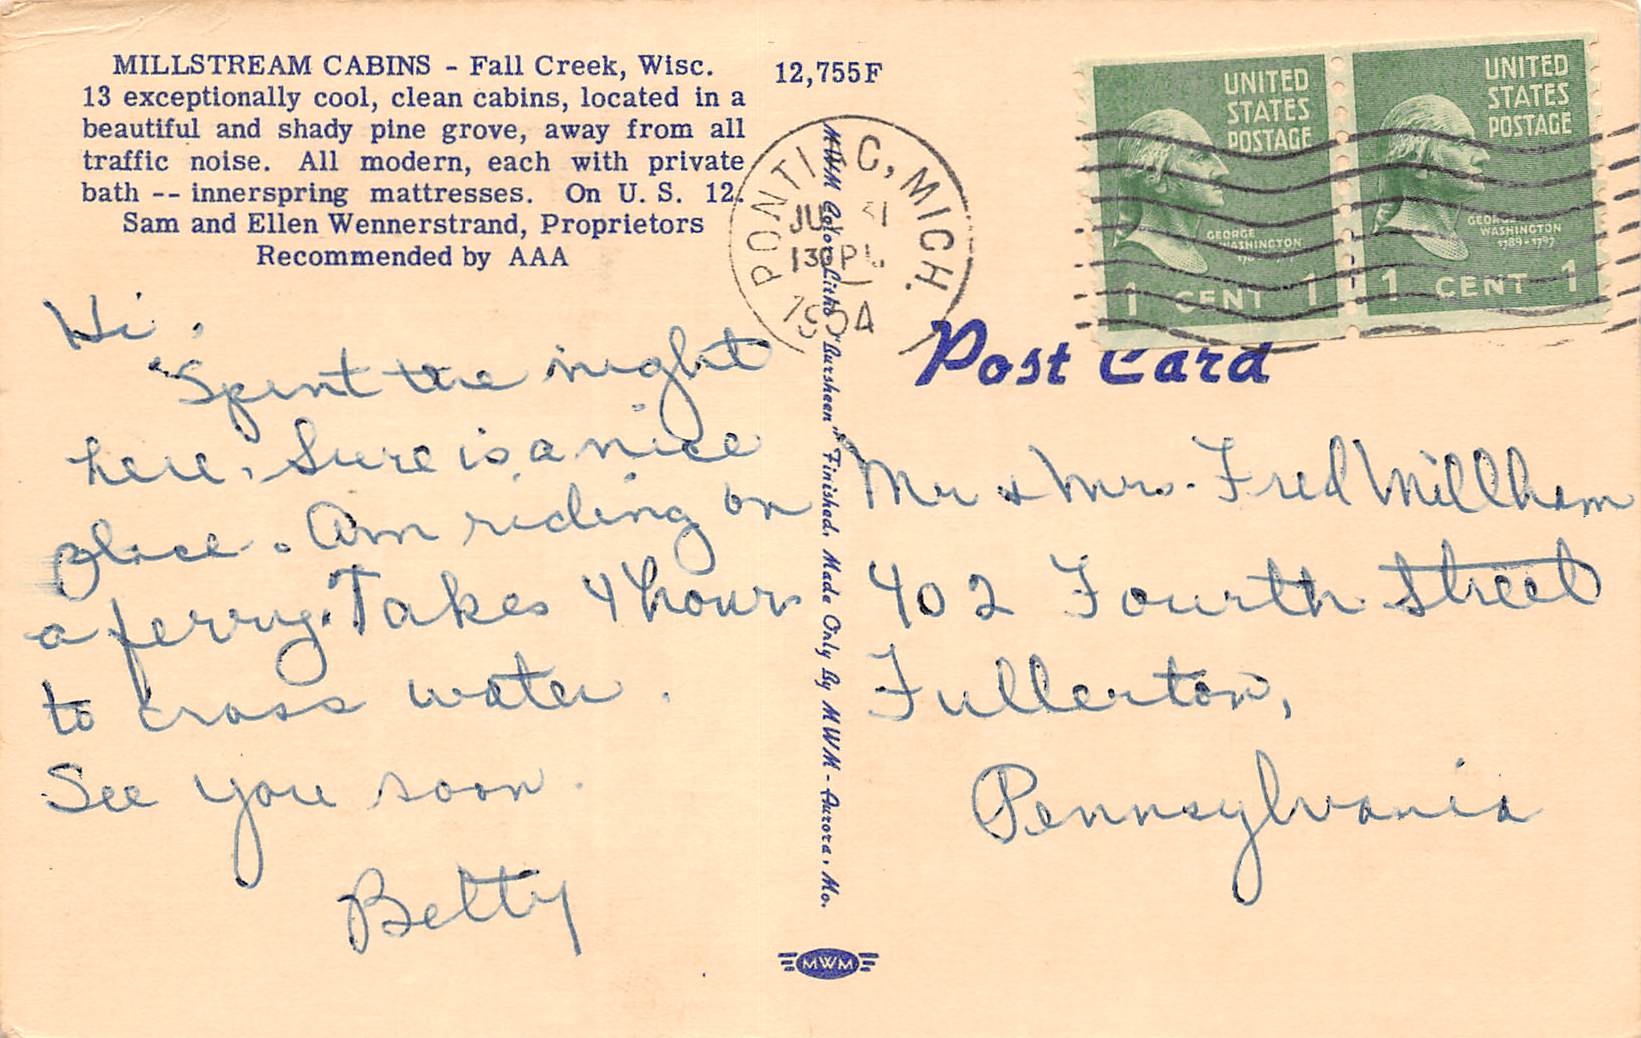 MILLSTREAM CABINS - Fall Creek, Wisc.
13 exceptionally cool, clean cabins, located in a
beautiful and shady pine grove, away from all
traffic noise. All modern, each with private
bath -- innerspring mattresses. On U. S. 12.
Sam and Ellen Wennerstrand, Proprietors
Recommended by AAA
12,755F
Hi,
Spent the night
here. Sure is a nice
place. Am riding on
a ferry. Takes 4 hours
to cross water.
See you soon.
Betty
MWM Color-Litho "Bursheen" Finished. Made Only By MWM - Aurora, Mo.
MWM
PONTIAC, MICH.
31
1954
UNITED
STATES
POSTAGE
GEORGE
WASHINGTON
1 CENT 1
UNITED
STATES
POSTAGE
GEORGE
WASHINGTON
1789-1797
1 CENT 1
Post Card
Mr & Mrs. Fred Millham
402 Fourth Street
Fullerton,
Pennsylvania